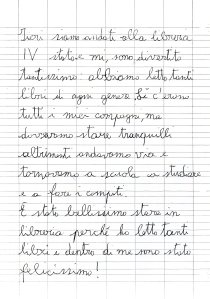 Ieri siamo andati alla libreria
IV stato e mi, sono divertito
tantissimo abbiamo letto tanti
libri di ogni genere. Lì c'erano
tutti i miei compagni, ma
dovevamo stare tranquilli
altrimenti andavamo via e
tornavamo a scuola a studiare
e a fare i compiti.
È stato bellissimo stare in
libreria perché ho letto tanti
libri e dentro di me sono stato
felicissimo!